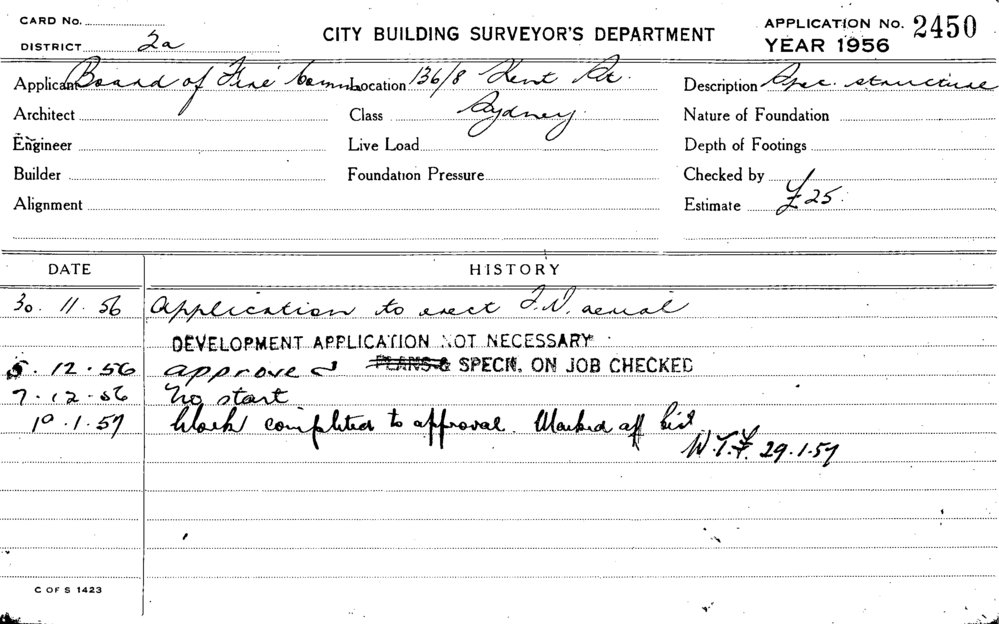 CARD No.
DISTRICT 2a
CITY BUILDING SURVEYOR'S DEPARTMENT
APPLICATION No. 2450
YEAR 1956
Applicant Board of Fire Comm. Location 136/8 Kent St. Description Spec. structure
Architect Class Sydney Nature of Foundation
Engineer Live Load Depth of Footings
Builder Foundation Pressure Checked by
Alignment Estimate £25.
DATE HISTORY
30. 11. 56 Application to erect T.V. aerial
DEVELOPMENT APPLICATION NOT NECESSARY
5. 12. 56 approved PLANS & SPECN. ON JOB CHECKED
7. 12. 56 No start
10. 1. 57 Work completed to approval. Marked off list
W.T.F. 29.1.57
C OF S 1423